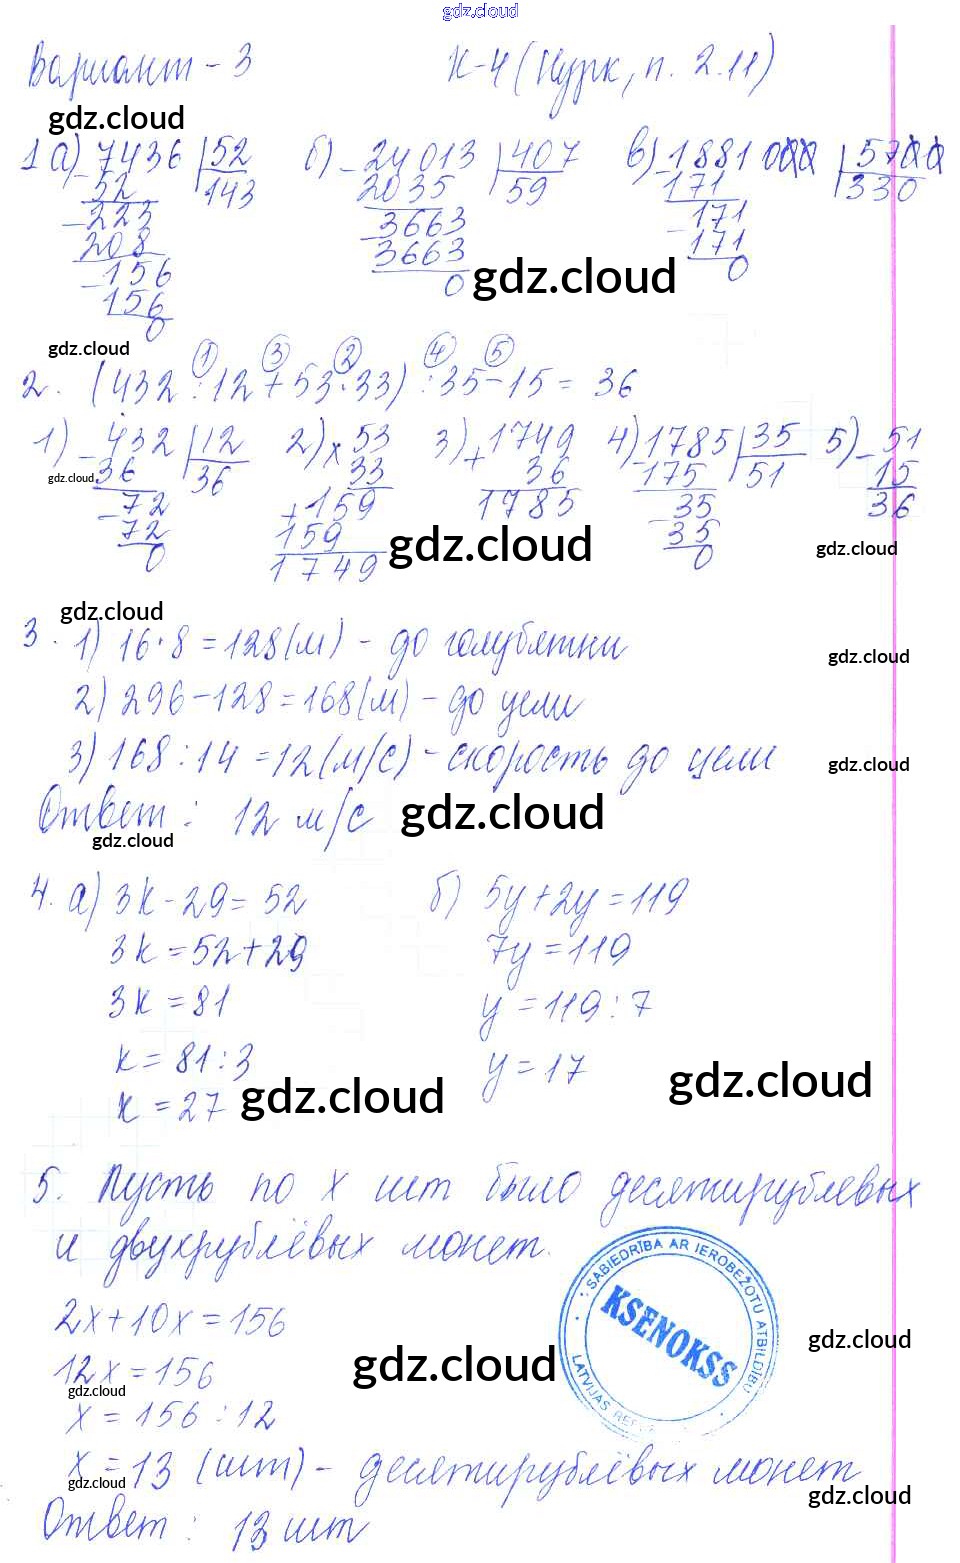 gdz.cloud
Вариант - 3 К-4 (Нурк, п. 2.11)
gdz.cloud
1 а) 7436 | 52 б) 24013 | 407 в) 1881000 | 5700
52 143 2035 59 171 330
223 3663 171
208 3663 171
156 0 gdz.cloud 0
156
0
gdz.cloud
1 3 2 4 5
2. (432 : 12 + 53 · 33) : 35 - 15 = 36
1) 432 | 12 2) × 53 3) + 1749 4) 1785 | 35 5) - 51
gdz.cloud 36 36 33 36 175 51 15
72 + 159 1785 35 36
72 159 gdz.cloud 35 gdz.cloud
0 1749 0
gdz.cloud
3. 1) 16 · 8 = 128 (м) - до голубятни
gdz.cloud
2) 296 - 128 = 168 (м) - до цели
3) 168 : 14 = 12 (м/с) - скорость до цели
gdz.cloud
Ответ: 12 м/с gdz.cloud
gdz.cloud
4. а) 3х - 29 = 52 б) 5у + 2у = 119
3х = 52 + 29 7у = 119
3х = 81 у = 119 : 7
х = 81 : 3 у = 17 gdz.cloud
х = 27 gdz.cloud
5. Пусть по х шт было десятирублевых
и двухрублёвых монет.
SABIEDRĪBA AR IEROBEŽOTU ATBILDĪBU
KSENOKSS
LATVIJAS
2х + 10х = 156
gdz.cloud
12х = 156 gdz.cloud
gdz.cloud
х = 156 : 12
х = 13 (шт) - десятирублёвых монет
gdz.cloud gdz.cloud
Ответ: 13 шт